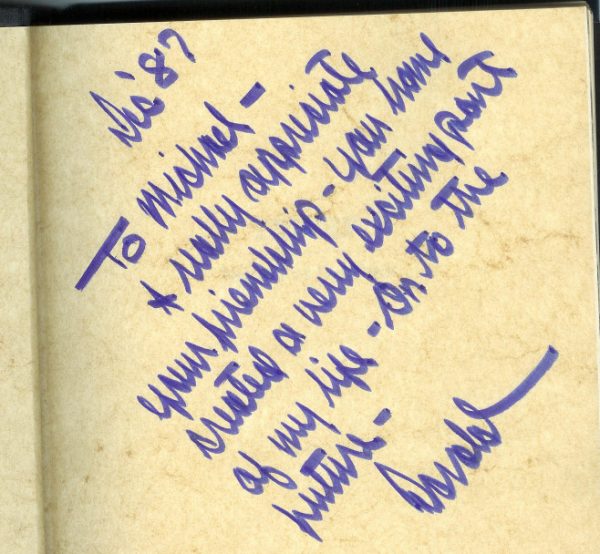 Dec '87
To Michael —
I really appreciate
your friendship - You have
created a very exciting part
of my life - On to the
future -
Donald